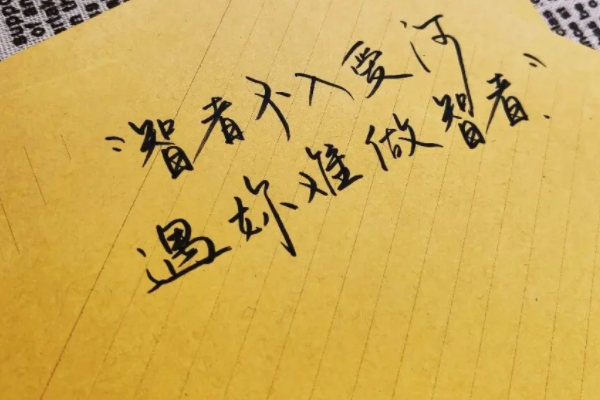 "智者不入爱河
遇妳难做智者"